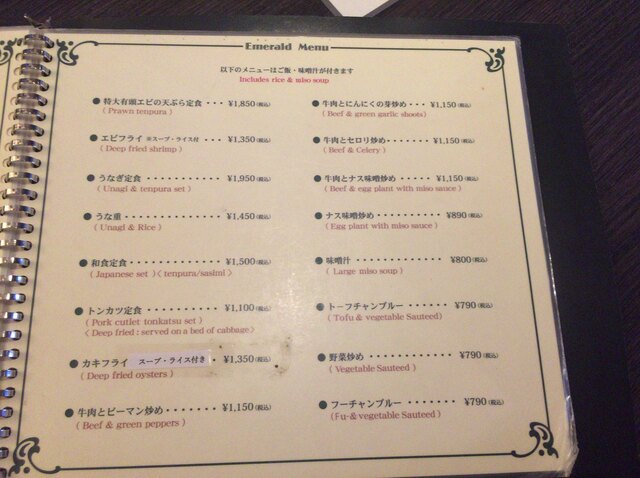 Emerald Menu
以下のメニューはご飯・味噌汁が付きます
Includes rice & miso soup
● 特大有頭エビの天ぷら定食 ・・・ ¥1,850(税込)
( Prawn tenpura )
● エビフライ ※スープ・ライス付 ・・・ ¥1,350(税込)
( Deep fried shrimp )
● うなぎ定食 ・・・・・・・・・・・ ¥1,950(税込)
( Unagi & tenpura set )
● うな重 ・・・・・・・・・・・・・ ¥1,450(税込)
( Unagi & Rice )
● 和食定食・・・・・・・・・・・・ ¥1,500(税込)
( Japanese set )< tenpura/sasimi >
● トンカツ定食 ・・・・・・・・・ ¥1,100(税込)
( Pork cutlet tonkatsu set )
< Deep fried : served on a bed of cabbage>
● カキフライ スープ・ライス付き ・ ¥1,350(税込)
( Deep fried oysters )
● 牛肉とピーマン炒め・・・・・・・ ¥1,150(税込)
( Beef & green peppers )
● 牛肉とにんにくの芽炒め・・・ ¥1,150(税込)
( Beef & green garlic shoots)
● 牛肉とセロリ炒め・・・・・・・ ¥1,150(税込)
( Beef & Celery )
● 牛肉とナス味噌炒め ・・・・・ ¥1,150(税込)
( Beef & egg plant with miso sauce )
● ナス味噌炒め ・・・・・・・・・・ ¥890(税込)
( Egg plant with miso sauce )
● 味噌汁 ・・・・・・・・・・・・・ ¥800(税込)
( Large miso soup )
● トーフチャンプルー ・・・・・・・ ¥790(税込)
( Tofu & vegetable Sauteed )
● 野菜炒め ・・・・・・・・・・・・ ¥790(税込)
( Vegetable Sauteed )
● フーチャンブルー ・・・・・・・・ ¥790(税込)
(Fu-& vegetable Sauteed )